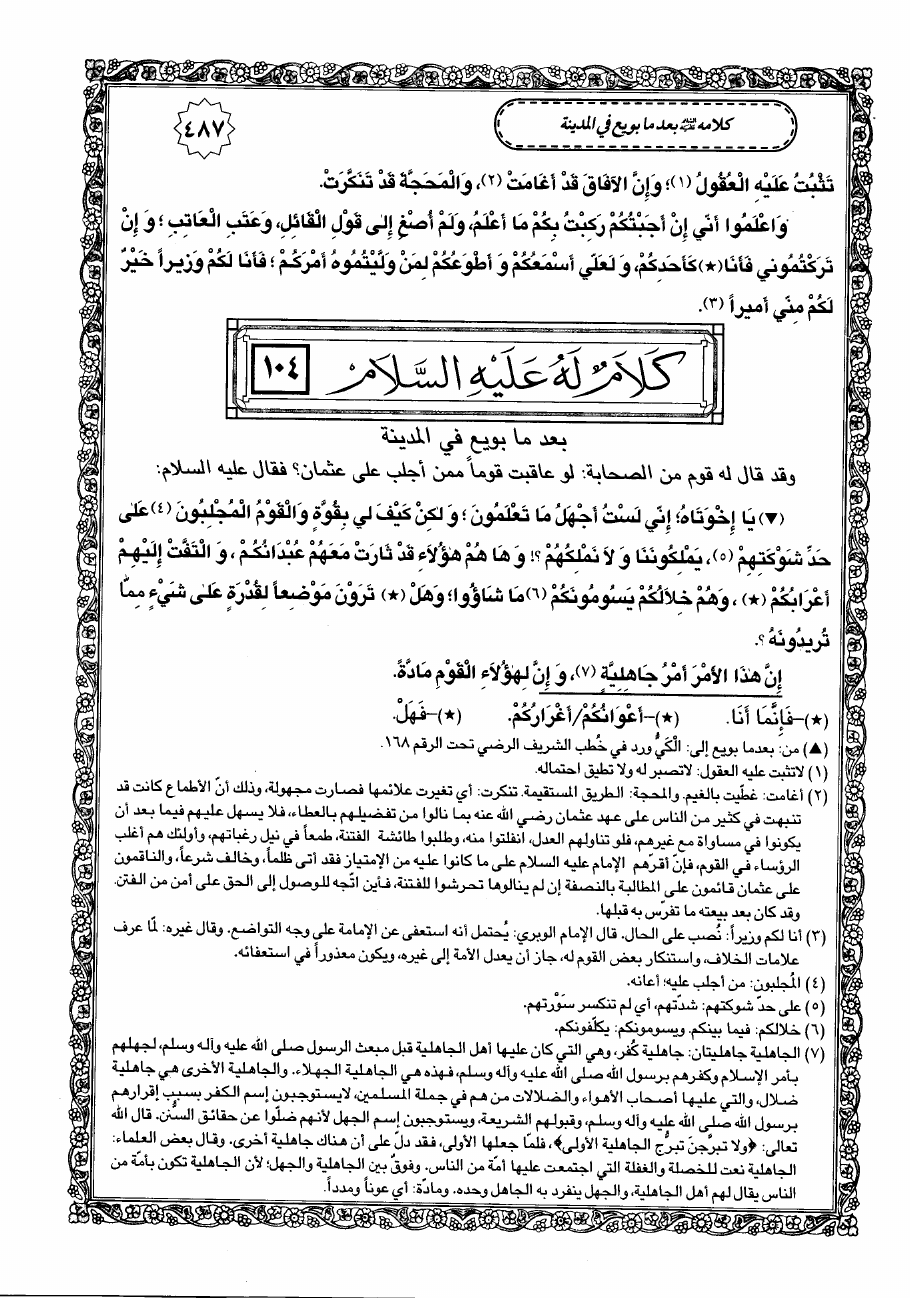 كلامه عليه السلام بعد ما بويع في المدينة
٤٨٧
تَثْبُتُ عَلَيْهِ الْعُقُولُ (١)؛ وَإِنَّ الآفَاقَ قَدْ أَغَامَتْ (٢)، وَالْمَحَجَّةَ قَدْ تَنَكَّرَتْ.
وَاعْلَمُوا أَنّي إِنْ أَجَبْتُكُمْ رَكِبْتُ بِكُمْ مَا أَعْلَمُ، وَلَمْ أُصْغِ إِلى قَوْلِ الْقَائِلِ، وَعَتَبِ الْعَاتِبِ؛ وَ إِنْ
تَرَكْتُمُوني فَأَنَا (★) كَأَحَدِكُمْ، وَ لَعَلّي أَسْمَعُكُمْ وَ أَطْوَعُكُمْ لِمَنْ وَلَّيْتُمُوهُ أَمْرَكُمْ؛ فَأَنَا لَكُمْ وَزيراً خَيْرٌ
لَكُمْ مِنّي أَميراً (٣).
كَلَامٌ لَهُ عَلَيْهِ السَّلَامُ
١٠٤
بعد ما بويع في المدينة
وقد قال له قوم من الصحابة: لو عاقبت قوماً ممن أجلب على عثمان؟ فقال عليه السلام:
(▼) يَا إِخْوَتَاهُ؛ إِنّي لَسْتُ أَجْهَلُ مَا تَعْلَمُونَ؛ وَ لكِنْ كَيْفَ لي بِقُوَّةٍ وَالْقَوْمُ الْمُجْلِبُونَ (٤) عَلى
حَدِّ شَوْكَتِهِمْ (٥)، يَمْلِكُونَنَا وَ لاَ نَمْلِكُهُمْ؟! وَ هَا هُمْ هؤُلاَءِ قَدْ ثَارَتْ مَعَهُمْ عُبْدَانُكُمْ، وَ الْتَفَّتْ إِلَيْهِمْ
أَعْرَابُكُمْ (★)، وَهُمْ خِلاَلَكُمْ يَسُومُونَكُمْ (٦) مَا شَاؤُوا؛ وَهَلْ (★) تَرَوْنَ مَوْضِعاً لِقُدْرَةٍ عَلى شَيْءٍ مِمَّا
تُريدُونَهُ؟.
إِنَّ هذَا الأَمْرَ أَمْرُ جَاهِلِيَّةٍ (٧)، وَ إِنَّ لِهؤُلاَءِ الْقَوْمِ مَادَّةً.
(★)-فَإِنَّمَا أَنَا. (★)-أَعْوَانُكُمْ/أَغْرَارُكُمْ. (★)-فَهَلْ.
(▲) من: بعدما بويع إلى: الْكَيُّ ورد في خُطب الشريف الرضي تحت الرقم ١٦٨.
(١) لاتثبت عليه العقول: لاتصبر له ولا تطيق احتماله.
(٢) أغامت: غطّيت بالغيم. والمحجة: الطريق المستقيمة. تنكرت: أي تغيرت علائمها فصارت مجهولة، وذلك أنّ الأطماع كانت قد
تنبهت في كثير من الناس على عهد عثمان رضي الله عنه بما نالوا من تفضيلهم بالعطاء، فلا يسهل عليهم فيما بعد أن
يكونوا في مساواة مع غيرهم، فلو تناولهم العدل، انفلتوا منه، وطلبوا طائشة الفتنة، طمعاً في نيل رغباتهم، وأولئك هم أغلب
الرؤساء في القوم، فإنّ أقرّهم الإمام عليه السلام على ما كانوا عليه من الإمتياز فقد أتى ظلماً، وخالف شرعاً، والناقمون
على عثمان قائمون على المطالبة بالنصفة إن لم ينالوها تحرشوا للفتنة، فأين اتّجه للوصول إلى الحق على أمن من الفتن.
وقد كان بعد بيعته ما تفرّس به قبلها.
(٣) أنا لكم وزيراً: نُصب على الحال. قال الإمام الوبري: يُحتمل أنه استعفى عن الإمامة على وجه التواضع. وقال غيره: لمّا عرف
علامات الخلاف، واستنكار بعض القوم له، جاز أن يعدل الأمة إلى غيره، ويكون معذوراً في استعفائه.
(٤) المُجلبون: من أجلب عليه؛ أعانه.
(٥) على حدّ شوكتهم: شدّتهم، أي لم تنكسر سَوْرتهم.
(٦) خلالكم: فيما بينكم. ويسومونكم: يكلّفونكم.
(٧) الجاهلية جاهليتان: جاهلية كُفر، وهي التي كان عليها أهل الجاهلية قبل مبعث الرسول صلى الله عليه وآله وسلم، لجهلهم
بأمر الإسلام وكفرهم برسول الله صلى الله عليه وآله وسلم، فهذه هي الجاهلية الجهلاء. والجاهلية الأخرى هي جاهلية
ضلال، والتي عليها أصحاب الأهواء والضلالات من هم في جملة المسلمين، لايستوجبون إسم الكفر بسبب إقرارهم
برسول الله صلى الله عليه وآله وسلم، وقبولهم الشريعة، ويستوجبون إسم الجهل لأنهم ضلّوا عن حقائق السُنّن. قال الله
تعالى: ﴿ولا تبرّجنَ تبرُّج الجاهلية الأولى﴾، فلمّا جعلها الأولى، فقد دلّ على أن هناك جاهلية أخرى. وقال بعض العلماء:
الجاهلية نعت للخصلة والغفلة التي اجتمعت عليها أمّة من الناس. وفوقٌ بين الجاهلية والجهل؛ لأن الجاهلية تكون بأمّة من
الناس يقال لهم أهل الجاهلية، والجهل ينفرد به الجاهل وحده. ومادّة: أي عوناً ومدداً.